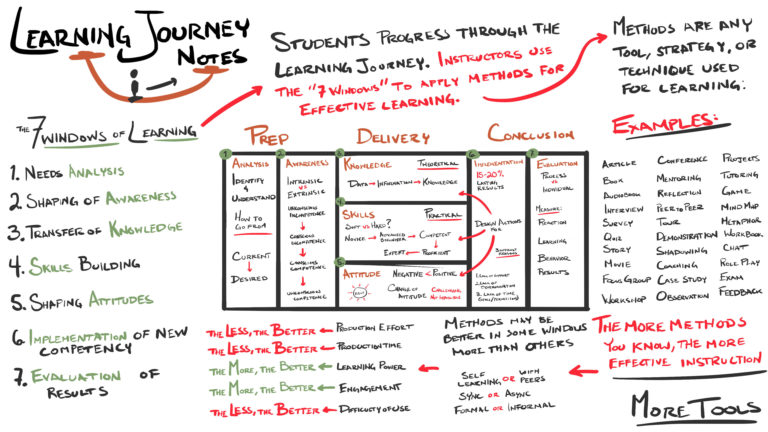 Learning Journey
Notes
Students progress through the
Learning Journey. Instructors use
the "7 Windows" to apply methods for
effective learning.
Methods are any
tool, strategy, or
technique used
for learning:
The 7 Windows of Learning
1. Needs Analysis
2. Shaping of Awareness
3. Transfer of Knowledge
4. Skills Building
5. Shaping Attitudes
6. Implementation of New
Competency
7. Evaluation of
Results
Prep
Delivery
Conclusion
1
Analysis
Identify
&
Understand
How to
go from
Current
Desired
2
Awareness
Intrinsic
vs
Extrinsic
Unconscious
Incompetence
Conscious
Incompetence
Conscious
Competence
Unconscious
Competence
3
Knowledge
Theoretical
Data → Information → Knowledge
4
Skills
Practical
Soft vs Hard?
Novice → Advanced Beginner → Competent
Expert ← Proficient
5
Attitude
Negative < Positive
Change of
Attitude
Challenging,
6
Implementation
15-20%
Lasting
Results
Design Actions
for
1. Lack of support
7
Evaluation
Process
vs
Individual
Measure:
Reaction
Learning
Behavior
Results
Examples:
Article
Book
Audiobook
Interview
Survey
Quiz
Story
Movie
Focus Group
Workshop
Conference
Mentoring
Reflection
Peer to Peer
Tour
Demonstration
Shadowing
Coaching
Case Study
Observation
Projects
Tutoring
Game
Mind Map
Metaphor
Workbook
Chat
Role Play
Exam
Feedback
The Less, the Better ← Production Effort
The Less, the Better ← Production Time
The More, the Better ← Learning Power
The More, the Better ← Engagement
The Less, the Better ← Difficulty of Use
Methods may be
better in some windows
more than others
Self Learning or with Peers
Sync or Async
Formal or Informal
The more methods
you know, the more
effective instruction
More Tools